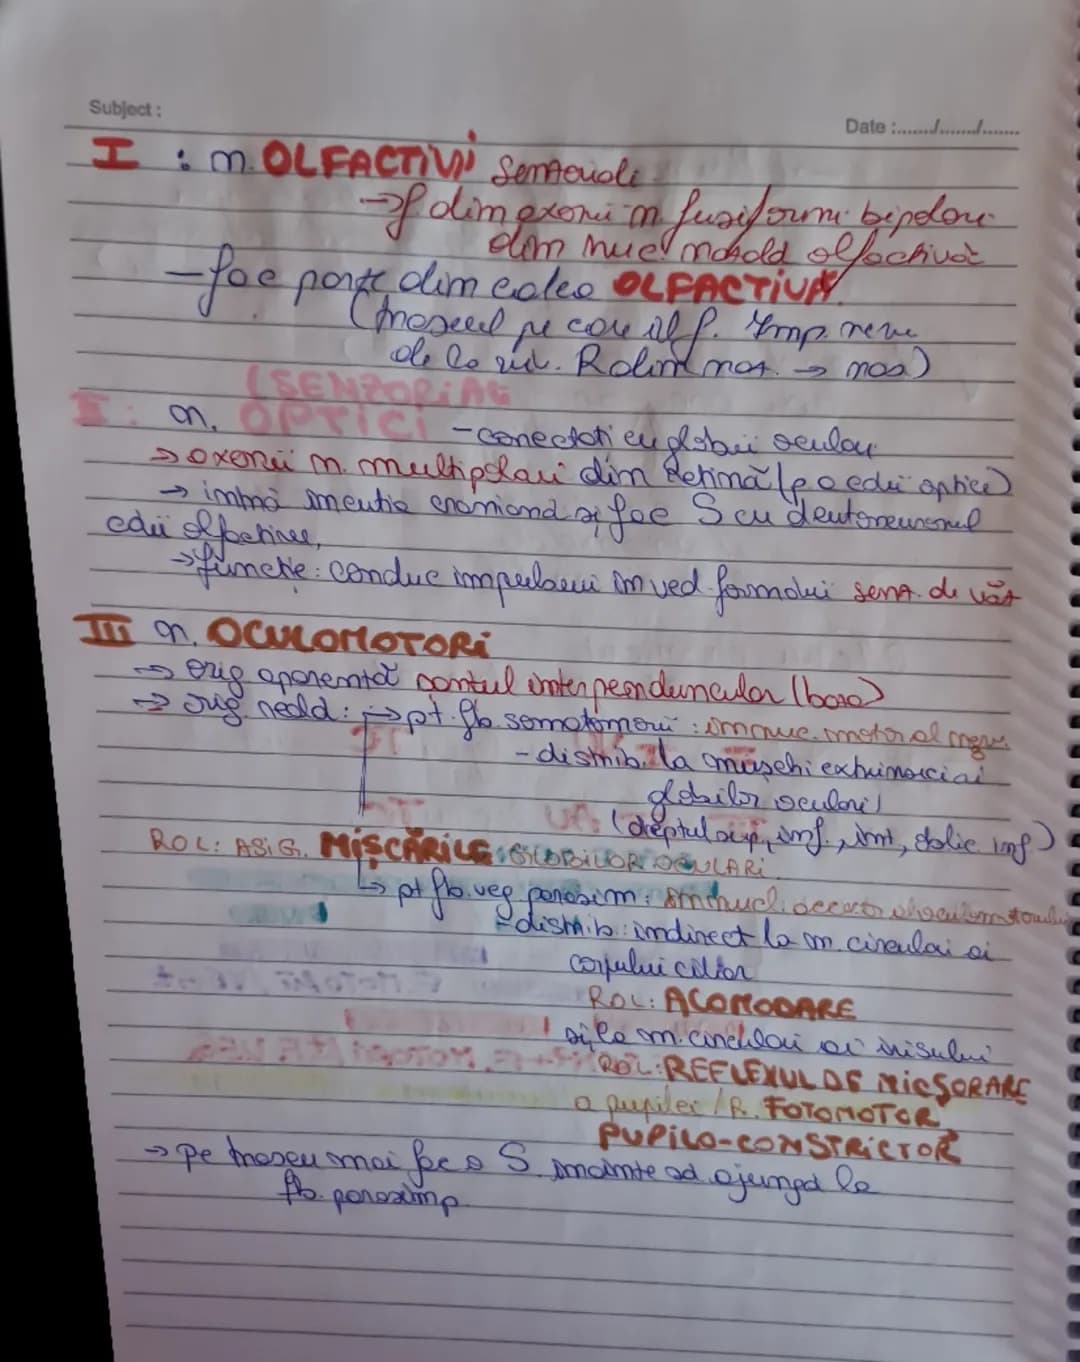 Subject :
Date :......./......./.......
I : n. OLFACTIVI senzoriali
→ f din axonii n. fusiformi bipolari
din mucoasa olfactivă
- fac parte din calea OLFACTIVĂ
(traseul pe care îl f. Imp. nerv
de la niv. nas. → nas)
(SENZORIALI
II : n. OPTICI - conectati cu globii oculari
→ axonii n. multipolari din Retină (p a căii optice)
→ intră in cutia craniană și fac S cu deutoneuronul
căii olfactive,
→ functie: conduc impulsuri in ved. formării senz. de văz
III n. OCULOMOTORI
→ orig aparentă șantul interpeenduncular (baza)
→ orig. reală: → pt. fb. somatomorii : in nuc. motor al nerv.
- distrib. la mușchi extrinseciai
globilor oculari
(dreptul sup, inf., int, oblic inf)
ROL: ASIG. MIȘCĂRILE GLOBILOR OCULARI.
↳ pt fb. veg parasim : din nucl. accesor al oculomotorului
- distrib: indirect la m. circulari ai
corpului ciliar
ROL: ACOMODARE
și la m. circulari ai irisului
ROL: REFLEXUL DE MICȘORARE
a pupilei / R. FOTOMOTOR
PUPILO-CONSTRICTOR
→ pe traseu mai fac o S inainte să ajungă la
fb. parasimp.